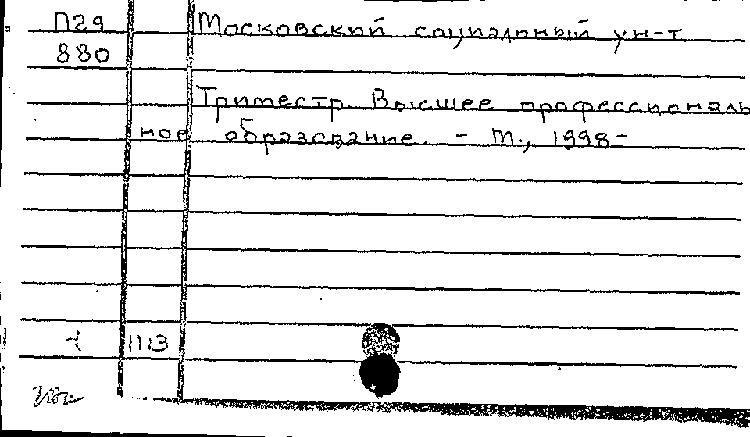 П29 Московский социальный ун-т
880
Триместр. Высшее профессиональ
ное образование. - М., 1998-
1113